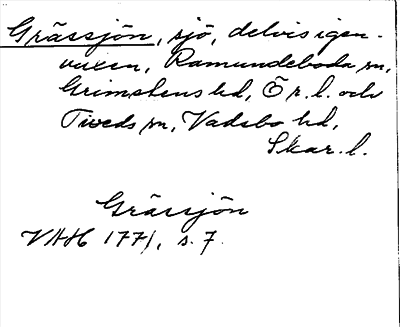 Grässjön, sjö, delvis igen-
vuxen, Ramundeboda sn,
Grimstens hd, Ö r. l. och
Tiveds sn, Vadsbo hd,
Skar. l.
Grässjön
VAH 1771, s. 7.